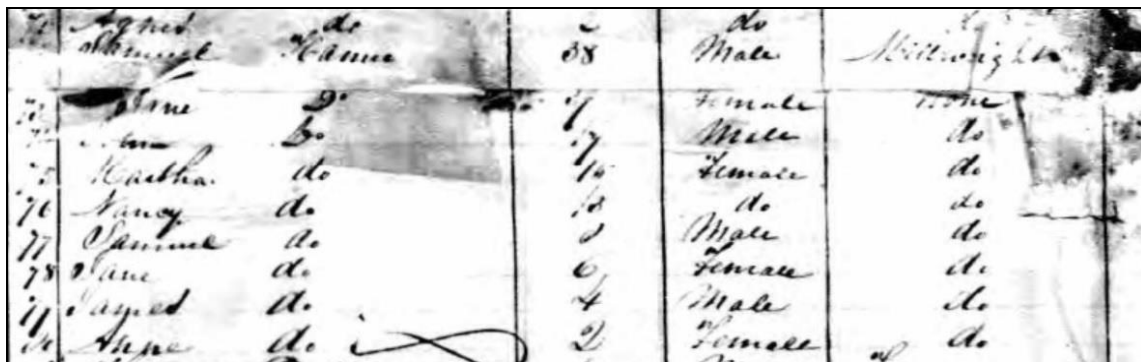 Agnes do 2 do
Samuel Hanna 38 Male Millwright
Jane Do Female None
do 17 Male do
75 Martha do 15 Female do
76 Nancy do 13 do do
77 Samuel do 8 Male do
78 Jane do 6 Female do
79 James do 4 Male do
80 Anne do 2 Female do